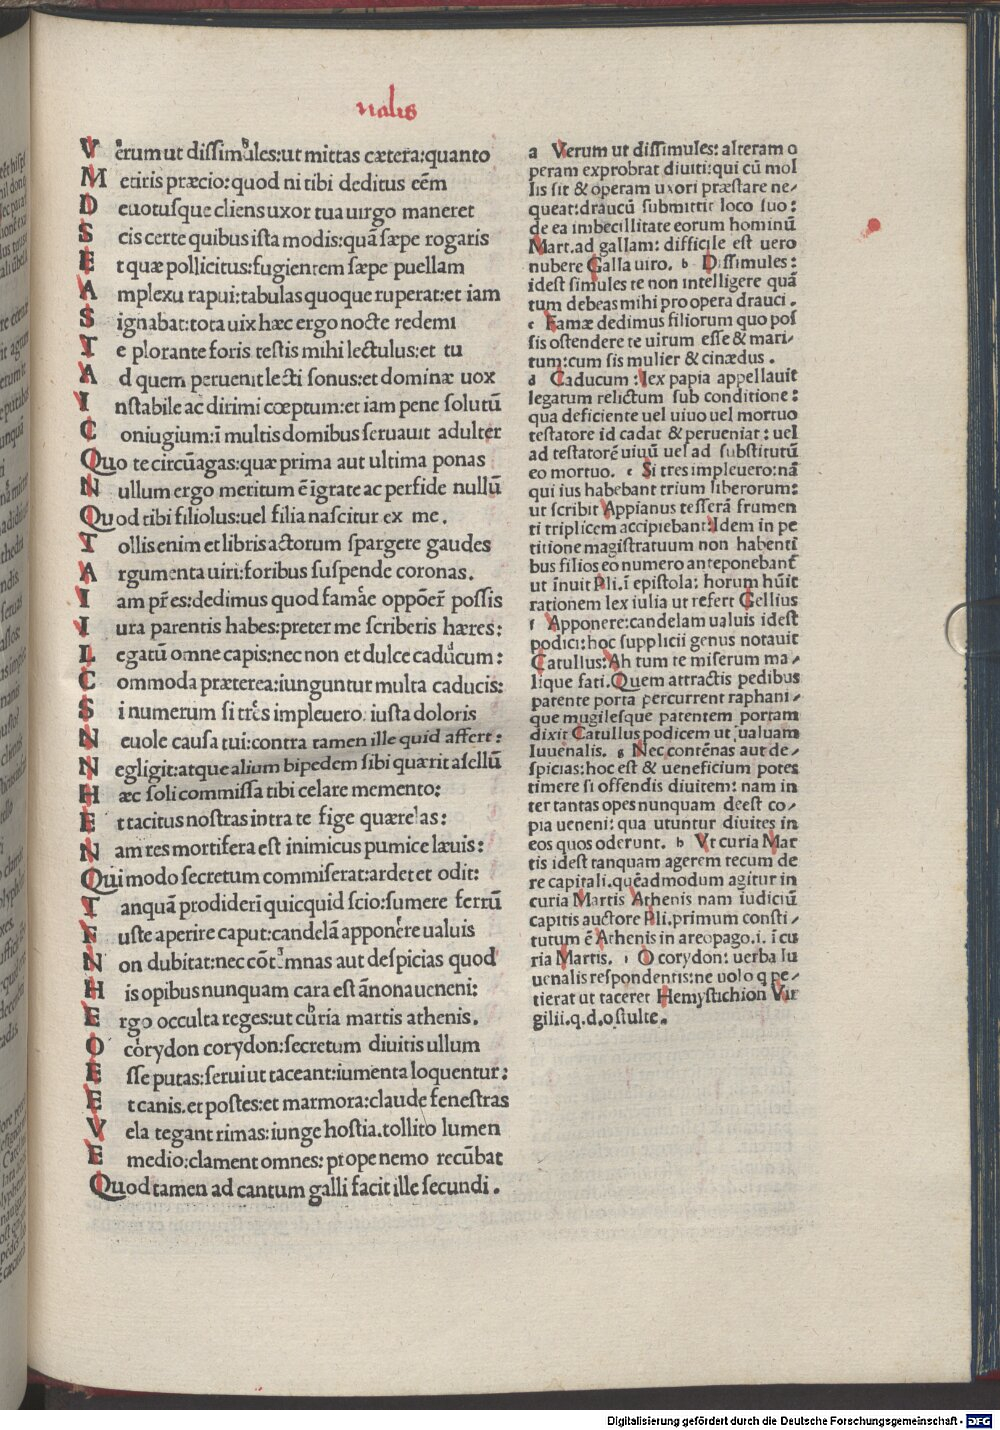 nalis
Verum ut dissimules:ut mittas cætera:quanto
Metiris præcio:quod ni tibi deditus eēm
Deuotusque cliens uxor tua uirgo maneret
Scis certe quibus ista modis:quā sæpe rogaris
Et quæ pollicitus:fugientem sæpe puellam
Amplexu rapui:tabulas quoque ruperat:et iam
Signabat:tota uix hæc ergo nocte redemi
Te plorante foris testis mihi lectulus:et tu
Ad quem peruenit lecti sonus:et dominæ uox
Instabile ac dirimi cœptum:et iam pene solutū
Coniugium:ī multis domibus seruauit adulter
Quo te circūagas:quæ prima aut ultima ponas
Nullum ergo meritum ē īgrate ac perfide nullū
Quod tibi filiolus:uel filia nascitur ex me.
Tollis enim et libris actorum spargere gaudes
Argumenta uiri:foribus suspende coronas.
Iam pr̄es:dedimus quod famæ oppōer̄ possis
Iura parentis habes:preter me scriberis hæres:
Legatū omne capis:nec non et dulce caducum:
Commoda præterea:iunguntur multa caducis:
Si numerum si tres impleuero: iusta doloris
Neuole causa tui:contra tamen ille quid affert:
Negligit:atque alium bipedem sibi quærit asellū
Hæc soli commissa tibi celare memento:
Et tacitus nostras intra te fige quærelas:
Nam res mortifera est inimicus pumice læuis:
Qui modo secretum commiserat:ardet et odit:
Tanquā prodideri quicquid scio:sumere ferrū
Fuste aperire caput:candelā apponere ualuis
Non dubitat:nec cōtēmnas aut despicias quod
His opibus nunquam cara est ānona ueneni:
Ergo occulta reges:ut curia martis athenis.
O corydon corydon:secretum diuitis ullum
Esse putas:serui ut taceant:iumenta loquentur:
Et canis.et postes:et marmora:claude fenestras
Vela tegant rimas:iunge hostia.tollito lumen
E medio:clament omnes: prope nemo recūbat
Quod tamen ad cantum galli facit ille secundi.
a Verum ut dissimules: alteram o
peram exprobrat diuiti:qui cū mol
lis sit & operam uxori præstare ne/
queat:draucū submittit loco suo:
de ea imbecillitate eorum hominū
Mart.ad gallam: difficile est uero
nubere Galla uiro. b Dissimules:
idest simules te non intelligere quā
tum debeas mihi pro opera drauci.
c Famæ dedimus filiorum quo pos
sis ostendere te uirum esse & mari/
tum:cum sis mulier & cinædus.
d Caducum: lex papia appellauit
legatum relictum sub conditione:
qua deficiente uel uiuo uel mortuo
testatore id cadat & perueniat: uel
ad testatorē uiuū uel ad substitutū
eo mortuo. e Si tres impleuero:nā
qui ius habebant trium liberorum:
ut scribit Appianus tesserā frumen
ti triplicem accipiebant:Idem in pe
titione magistratuum non habenti
bus filios eo numero anteponebant̄
ut īnuit Pli.ī epistola: horum hūit
rationem lex iulia ut refert Gellius
f Apponere:candelam ualuis idest
podici:hoc supplicii genus notauit
Catullus:Ah tum te miserum ma/
lique fati.Quem attractis pedibus
patente porta percurrent raphani/
que mugilesque patentem portam
dixit Catullus podicem ut ualuam
Iuuenalis. g Nec contēnas aut de/
spicias:hoc est & ueneficium potes
timere si offendis diuitem: nam in
ter tantas opes nunquam deest co/
pia ueneni: qua utuntur diuites in
eos quos oderunt. h Vt curia Mar
tis idest tanquam agerem tecum de
re capitali.quēadmodum agitur in
curia Martis Athenis nam iudiciū
capitis auctore Pli.primum consti/
tutum ē Athenis in areopago.i. ī cu
ria Martis. i O corydon: uerba Iu
uenalis respondentis:ne uolo q pe/
tierat ut taceret Hemystichion Vir
gilii.q.d.o stulte.
Digitalisierung gefördert durch die Deutsche Forschungsgemeinschaft - DFG